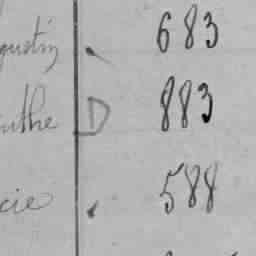 gustin . 683
nthe D 883
cie . 588